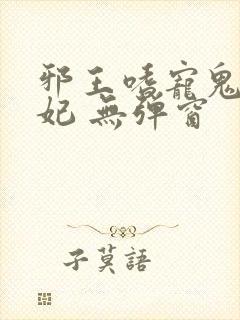 邪王嗜寵鬼
妃 無彈窗
子莫語